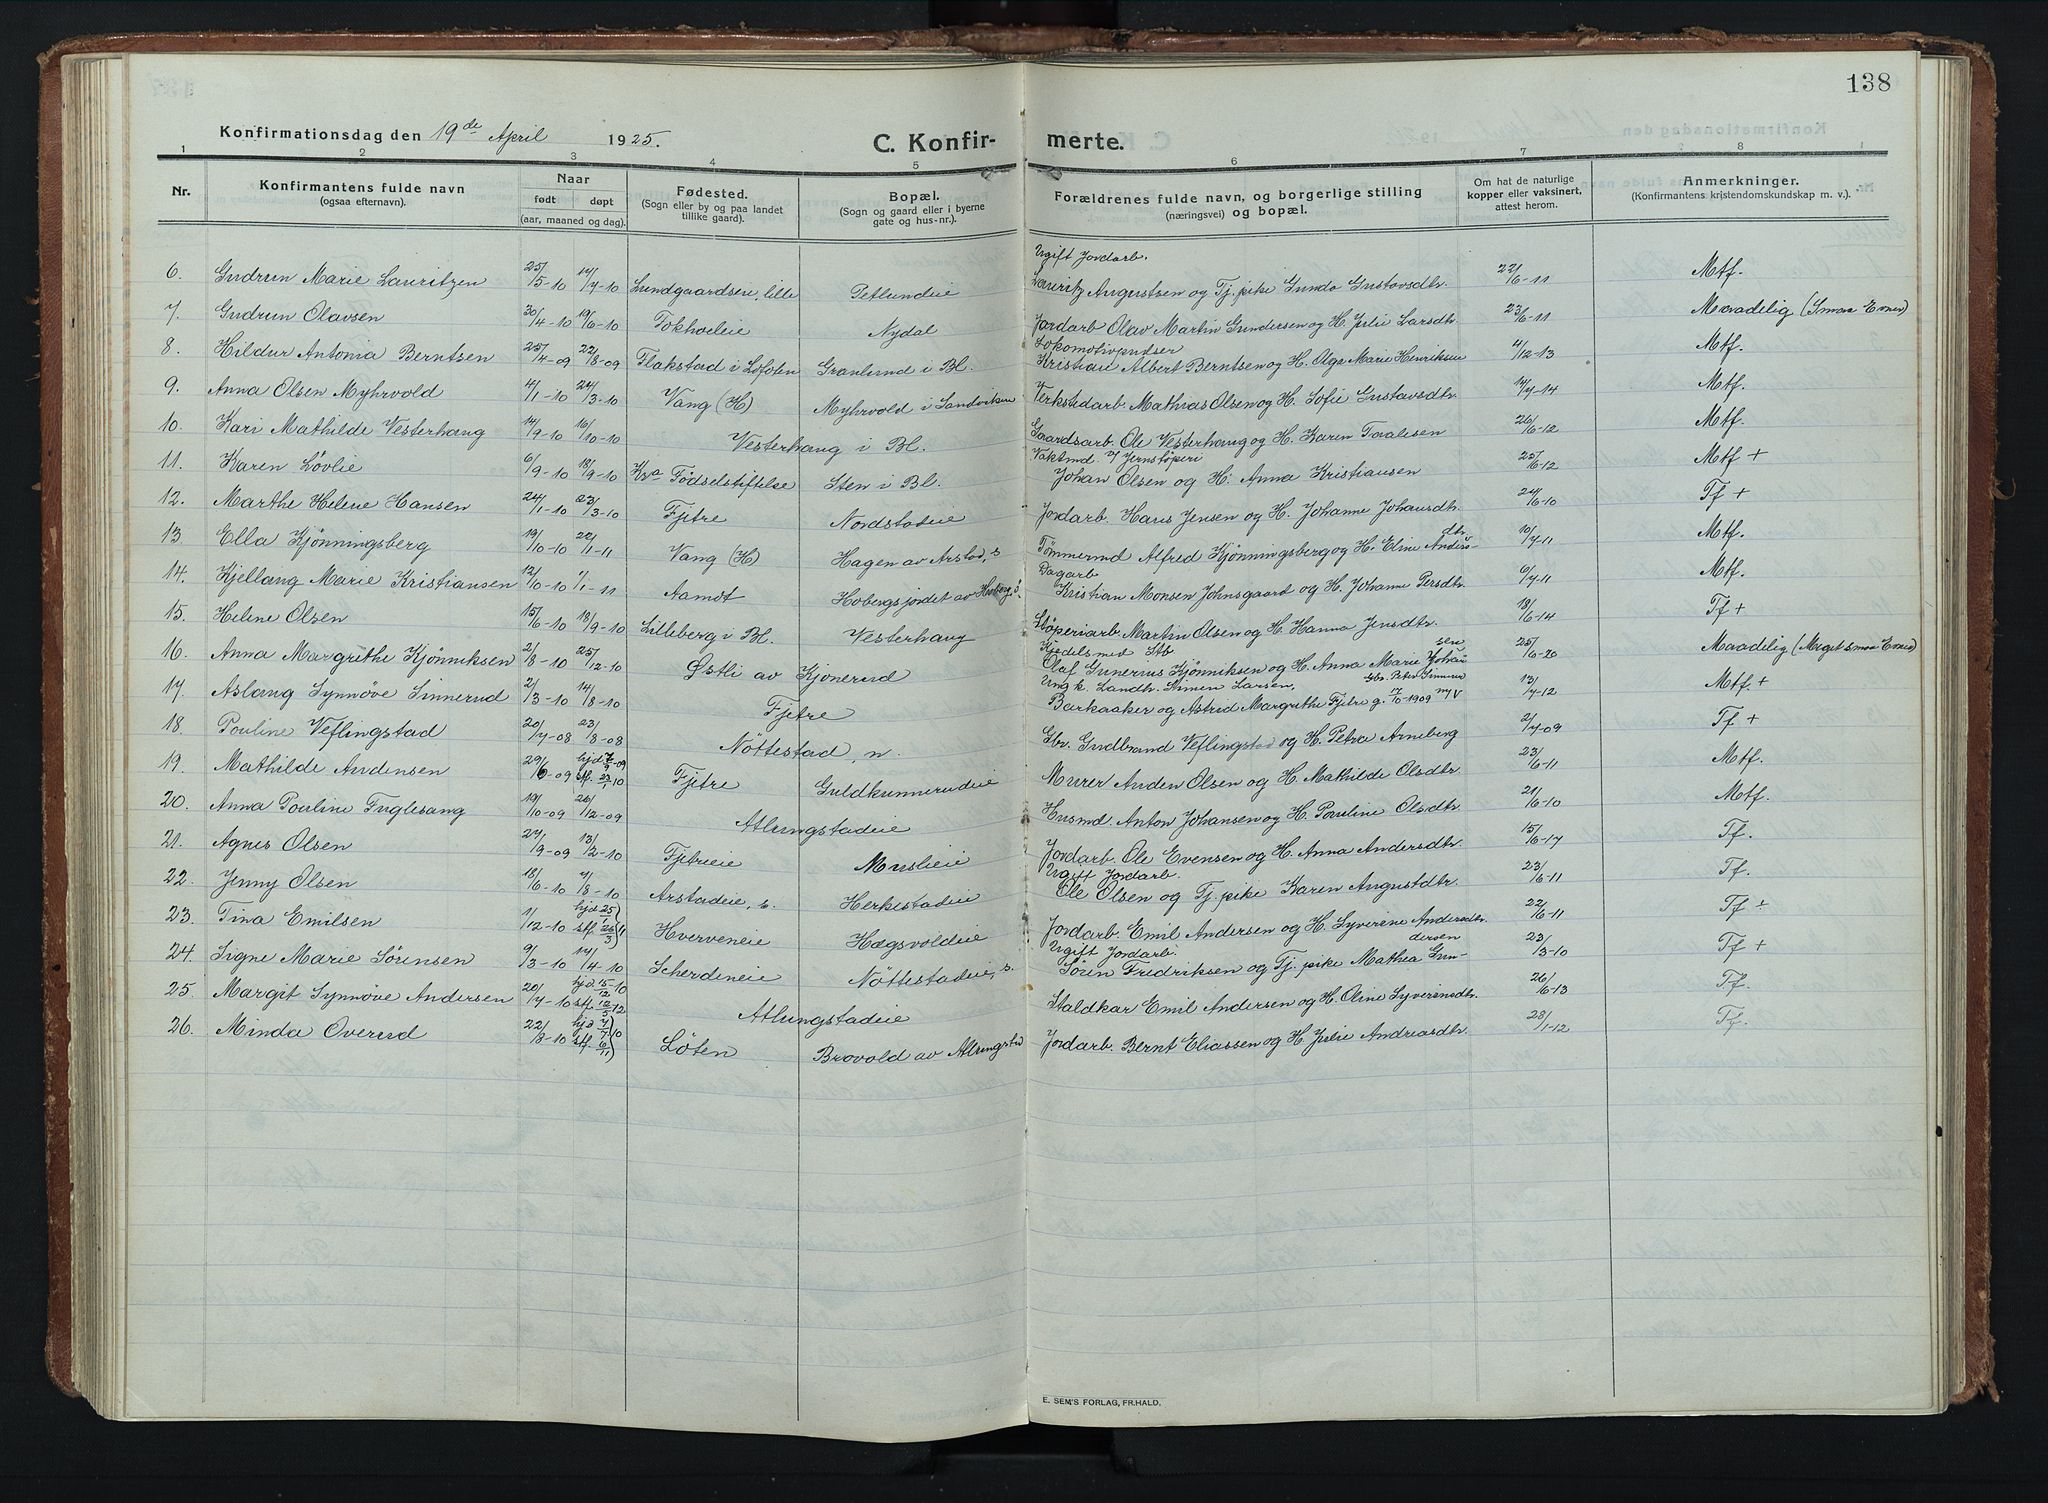 138
Konfirmationsdag den 19de April 1925.
C. Konfir-
merte.
1 2 3 4 5 6 7 8
Nr.
Konfirmantens fulde navn
(ogsaa efternavn).
Naar
født døpt
(aar, maaned og dag).
Fødested.
(Sogn eller by og paa landet
tillike gaard).
Bopæl.
(Sogn og gaard eller i byerne
gate og hus-nr.).
Forældrenes fulde navn, og borgerlige stilling
(næringsvei) og bopæl.
Om hat de naturlige
kopper eller vaksinert,
attest herom.
Anmerkninger.
(Konfirmantens kristendomskundskap m. v.).
Ugift Jordarb.
6. Gudrun Marie Lauritzen 25/5-10 14/7-10 Lundgaardseie, lille Petlundeie Lauritz Augustsen og Tj. pike Gunda Gustavsdtr. 22/6-11 Mtf.
7. Gudrun Olavsen 30/4-10 19/6-10 Tokhoeleie Nydal Jordarb Olav Martin Gundersen og H. Julie Larsdtr. 23/6-11 Maadelig (Smaa Evner)
Lokomotivpudser
8. Hildur Antonia Berntsen 25/4-09 22/8-09 Flakstad i Lofoten Granlund i Bl. Kristian Albert Berntsen og H. Olga Marie Henriksen 4/12-13 Mtf.
9. Anna Olsen Myhrvold 4/1-10 24/3-10 Vang (H) Myhrvold i Sandviken Verkstedarb. Mathias Olsen og H. Sofie Gustavsdtr. 14/7-14 Mtf.
10. Kari Mathilde Vesterhaug 14/9-10 16/10-10 Vesterhaug i Bl. Gaardsarb. Ole Vesterhaug og H. Karen Toralesen 26/6-12 Mtf.
Vaktmd. V Jernstøperi
11. Karen Løvlie 6/9-10 18/9-10 Kra Fødselstiftelse Sten i Bl. Johan Olsen og H. Anna Kristiansen 25/6-12 Mtf +
12. Marthe Helene Hansen 24/1-10 23/3-10 Fjetre Nordstadeie Jordarb. Hans Jensen og H. Johanne Johansdtr. 24/6-10 Tf +
13. Ella Kjønningsberg 19/10-10 22/1-11 Vang (H) Hagen av Arstad, s Tømmermd Alfred Kjønningsberg og H. Eline Anders-dtr. 10/7-11 Mtf.
Dagarb
14. Kjellaug Marie Kristiansen 12/10-10 1/1-11 Aamot Hobergsjordet av Hoberg, ø. Kristian Monsen Johnsgaard og H. Johanne Persdtr. 6/7-11 Mtf.
15. Helene Olsen 15/6-10 18/9-10 Lilleberg i Bl. Vesterhaug Støperiarb. Martin Olsen og H. Hanna Jensdtr. 18/6-14 Tf +
Kjedelsmed Stb
16. Anna Margrithe Kjønniksen 2/8-10 25/12-10 Østli av Kjonerud Olaf Gunerius Kjønniksen og H. Anna Marie Johansen 25/6-20 Maadelig (Meget smaa Evner)
Ungk. Landbr. Simen Larsen, Gbr. Peter Sinnerud
17. Aslaug Synnøve Sinnerud 2/3-10 14/8-10 Fjetre Barkaaker og Astrid Margrithe Fjetre g. 17/10-1909 13/7-12 Mtf +
18. Pouline Veflingstad 20/7-08 23/8-08 Nøttestad, n. Gbr. Gudbrand Veflingstad og H. Petra Arneberg 2/7-09 Tf +
19. Mathilde Andensen 29/6-09 hjd 7/9-09 stf. 23/1 10 Fjetre Guldkunnerudeie Murer Anden Olsen og H. Mathilde Olsdtr. 23/6-11 Mtf.
20. Anna Pouline Fuglesang 19/10-09 26/12-09 Atlungstadeie Husmd. Anton Johansen og H. Pouline Olsdtr. 21/6-10 Mtf.
21. Agnes Olsen 27/9-09 13/2-10 Fjetreeie Muslieie Jordarb. Ole Evensen og H. Anna Andersdtr. 15/6-17 Tf.
Ugift Jordarb.
22. Jenny Olsen 18/6-10 7/8-10 Arstadeie, s. Herkestadeie Ole Olsen og Tj. pike Karen Augustdtr. 23/6-11 Tf.
23. Tina Emilsen 1/12-10 hjd 25/1 stf. 26/3 11 Hverveneie Hægsvoldeie Jordarb Emil Andersen og H. Syverine Andersdtr. 22/6-11 Tf +
Ugift Jordarb.
24. Signe Marie Sørensen 9/3-10 17/4-10 Scherdeneie Nøttestadeie, s. Søren Fredriksen og Tj. pike Mathea Gundersen 23/3-10 Tf +
25. Margit Synnøve Andersen 20/7-10 hjd 15/12-10 stf. 12/5-12 Atlungstadeie Staldkar Emil Andersen og H. Oline Syverinsdtr. 26/6-13 Tf.
26. Minda Overud 22/8-10 hjd 7/7 stf. 6/11 10 Løten Brovold av Atlungstad Jordarb. Bernt Eliassen og H Julie Andreasdtr. 28/1-12 Tf.
E. SEM'S FORLAG, FR.HALD.